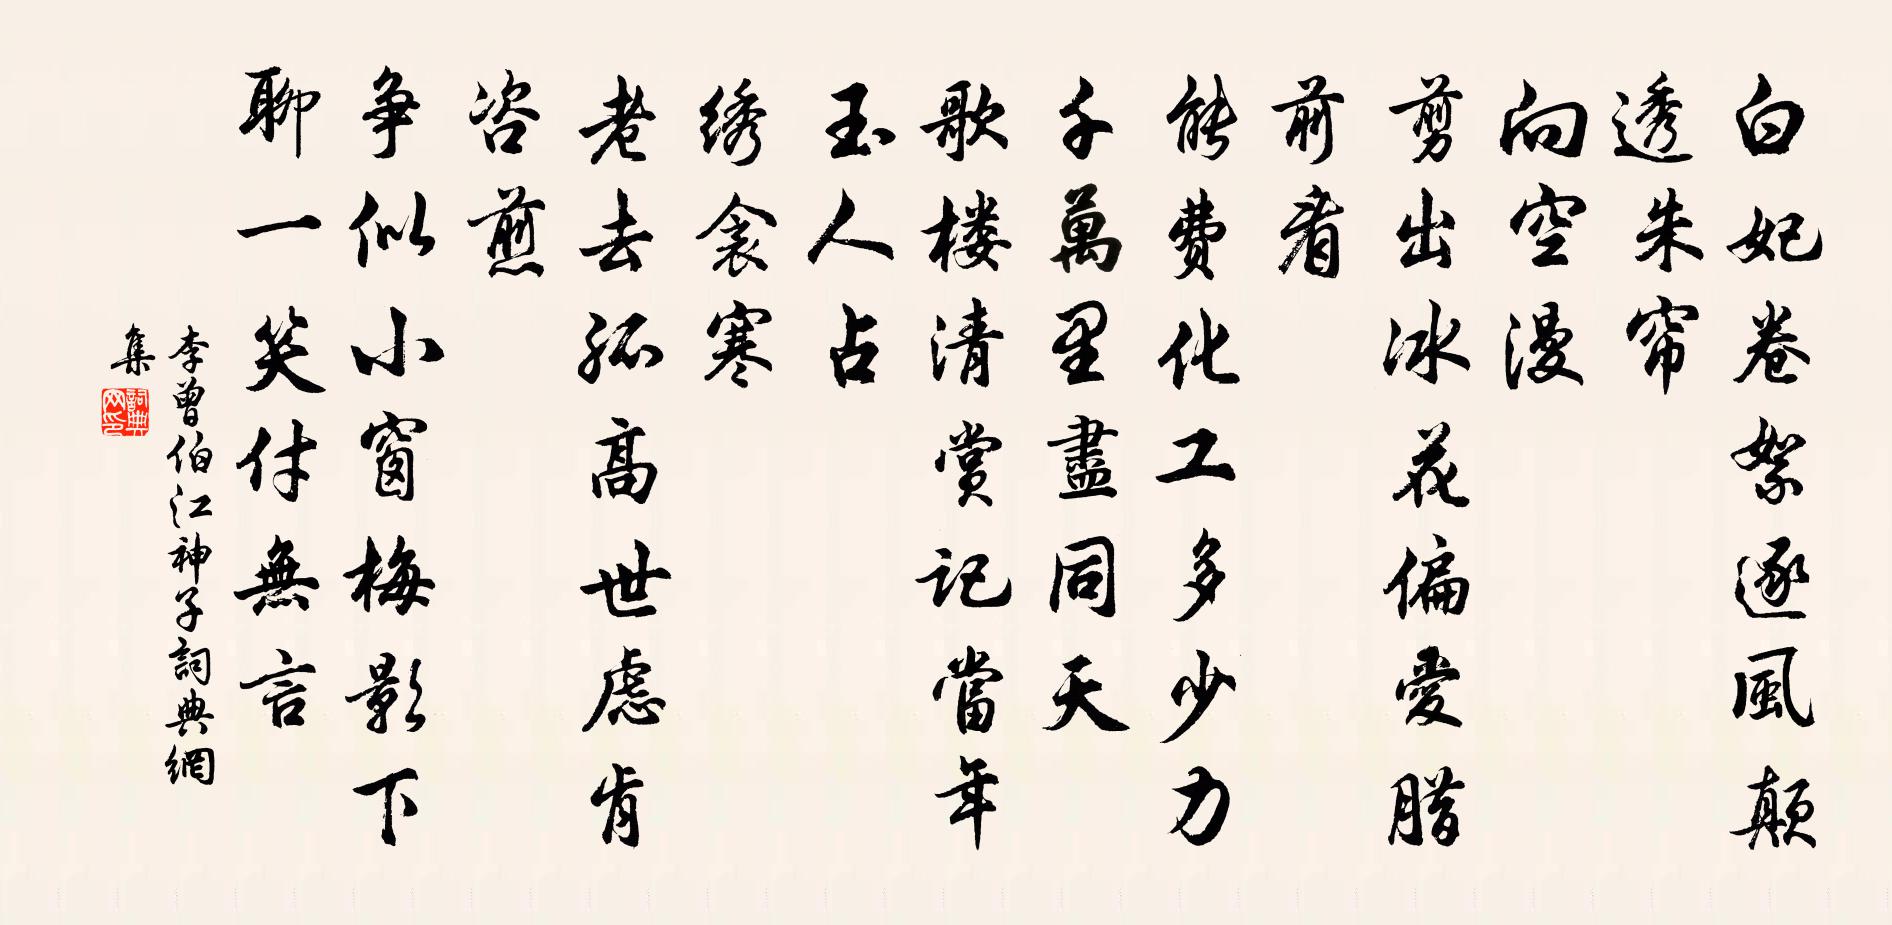 白妃卷絮逐風颠
透朱帘
向空漫
剪出冰花偏愛腊
前看
能費化工多少力
千萬里盡同天
歌楼清賞記當年
玉人占
绣衾寒
老去孤高世虑肯
咨煎
争似小窗梅影下
聊一笑付無言
李曾伯江神子詞典網
集
詞典網印